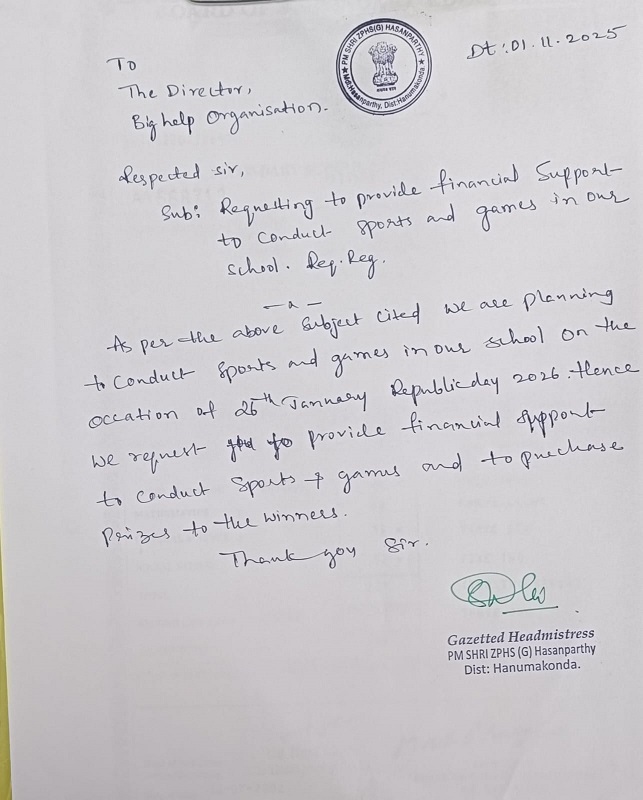 Dt: 01.11.2025
PM SHRI ZPHS(G) HASANPARTHY
Hasanparthy, Dist: Hanumakonda
To
The Director,
Big help Organisation.
Respected sir,
Sub: Requesting to provide financial Support
to conduct sports and games in our
school. Req. Reg.
As per the above subject cited we are planning
to conduct sports and games in our school on the
occation of 26th January Republic day 2026. Hence
we request to provide financial support
to conduct sports & games and to purchase
Prizes to the winners.
Thank you Sir.
Gazetted Headmistress
PM SHRI ZPHS (G) Hasanparthy
Dist: Hanumakonda.